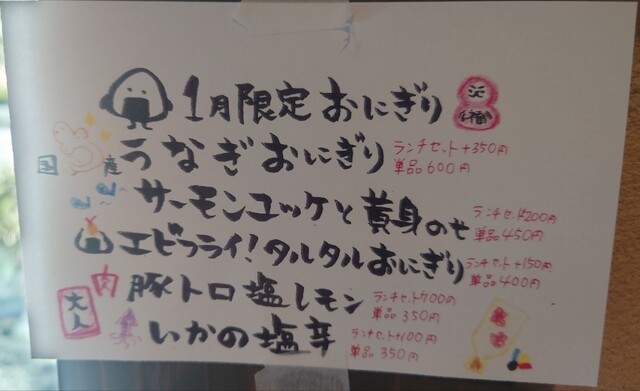 1月限定おにぎり
福
国産うなぎおにぎり
ランチセット+350円
単品600円
サーモンユッケと黄身のせ
ランチセット+200円
単品450円
エビフライ!タルタルおにぎり
ランチセット+150円
単品400円
肉
豚トロ塩レモン
ランチセット+100円
単品350円
大人
いかの塩辛
ランチセット+100円
単品350円